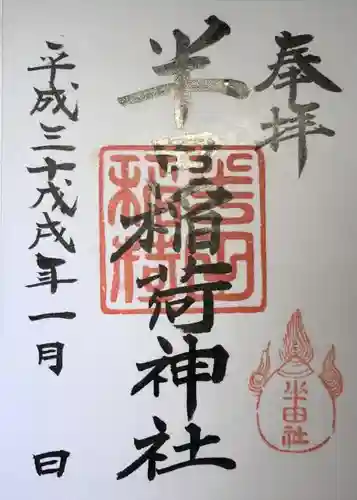 奉拝
半田稲荷神社
平成三十戊戌年一月 日
半田社